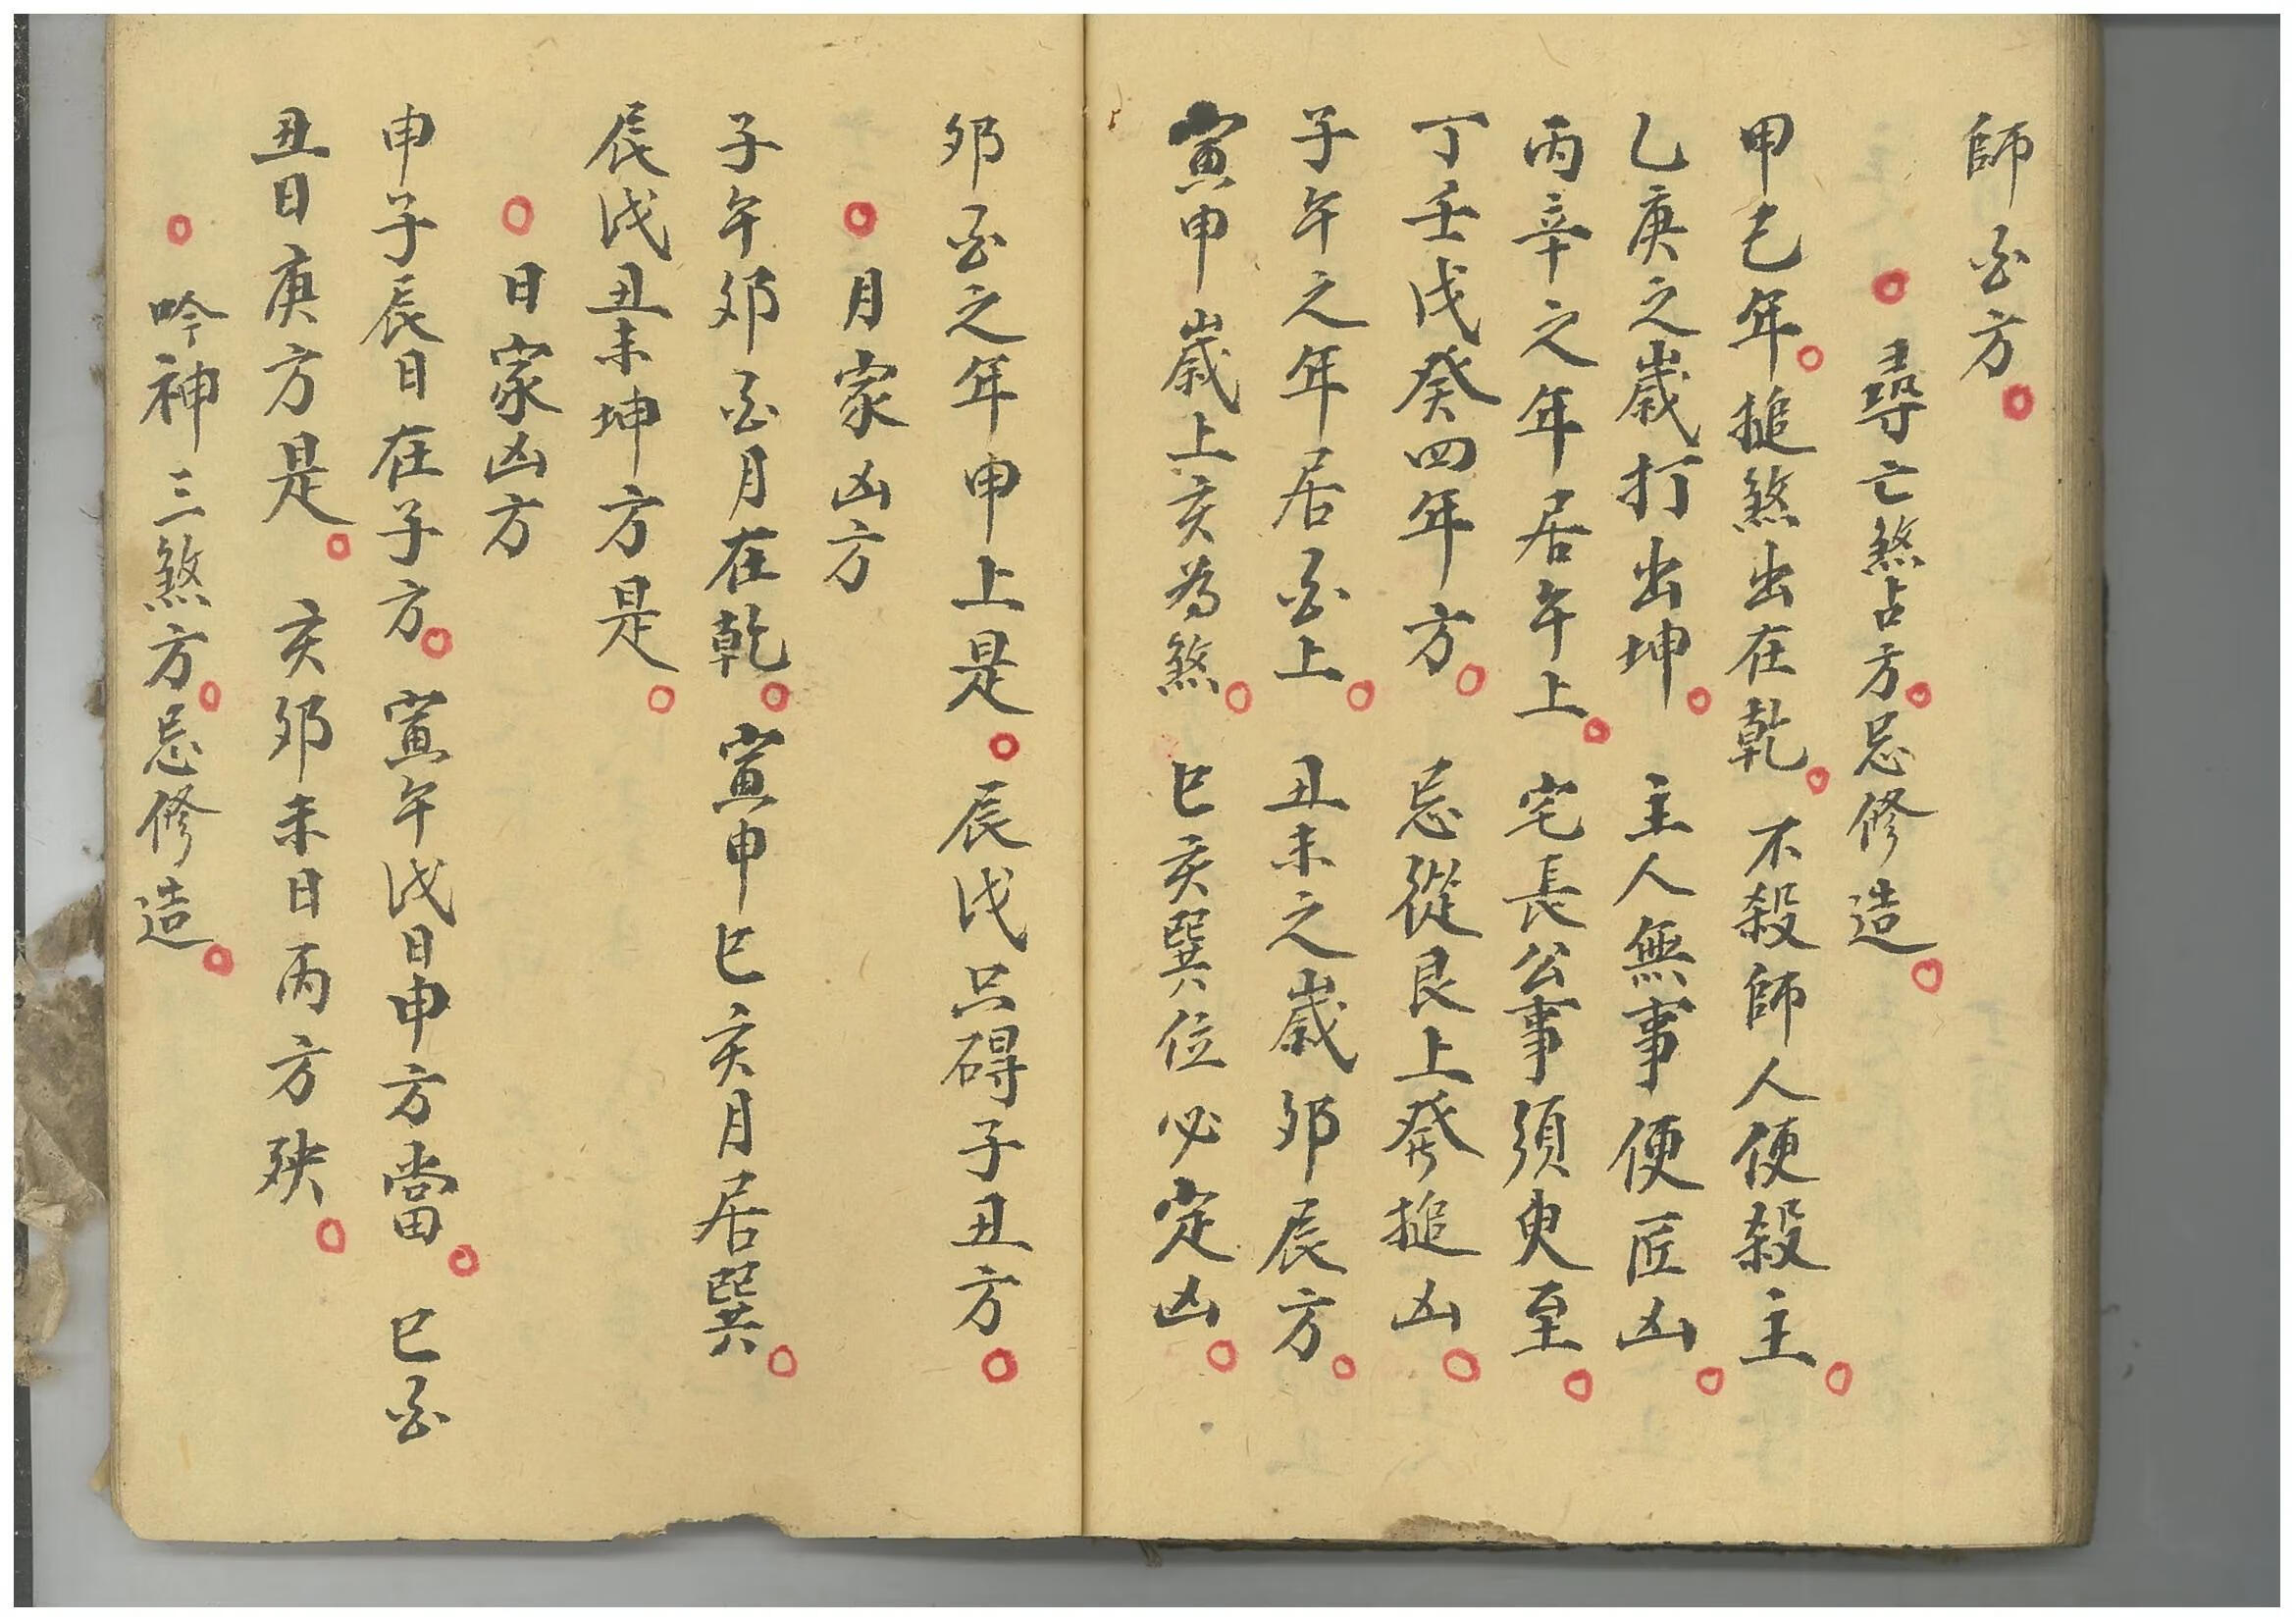 師酉方。
○尋亡煞占方。忌修造。
甲己年。搥煞出在乾。不殺師人便殺主。
乙庚之歲打出坤。主人無事便匠凶。
丙辛之年居午上。宅長公事須臾至。
丁壬戊癸四年方。忌從艮上發搥凶。
子午之年居酉上。丑未之歲卯辰方。
寅申歲上亥為煞。巳亥巽位必定凶。
卯酉之年申上是。辰戌只碍子丑方。
○月家凶方
子午卯酉月在乾。寅申巳亥月居巽。
辰戌丑未坤方是。
○日家凶方
申子辰日在子方。寅午戌日申方當。巳酉
丑日庚方是。亥卯未日丙方殃。
○吟神三煞方。忌修造。